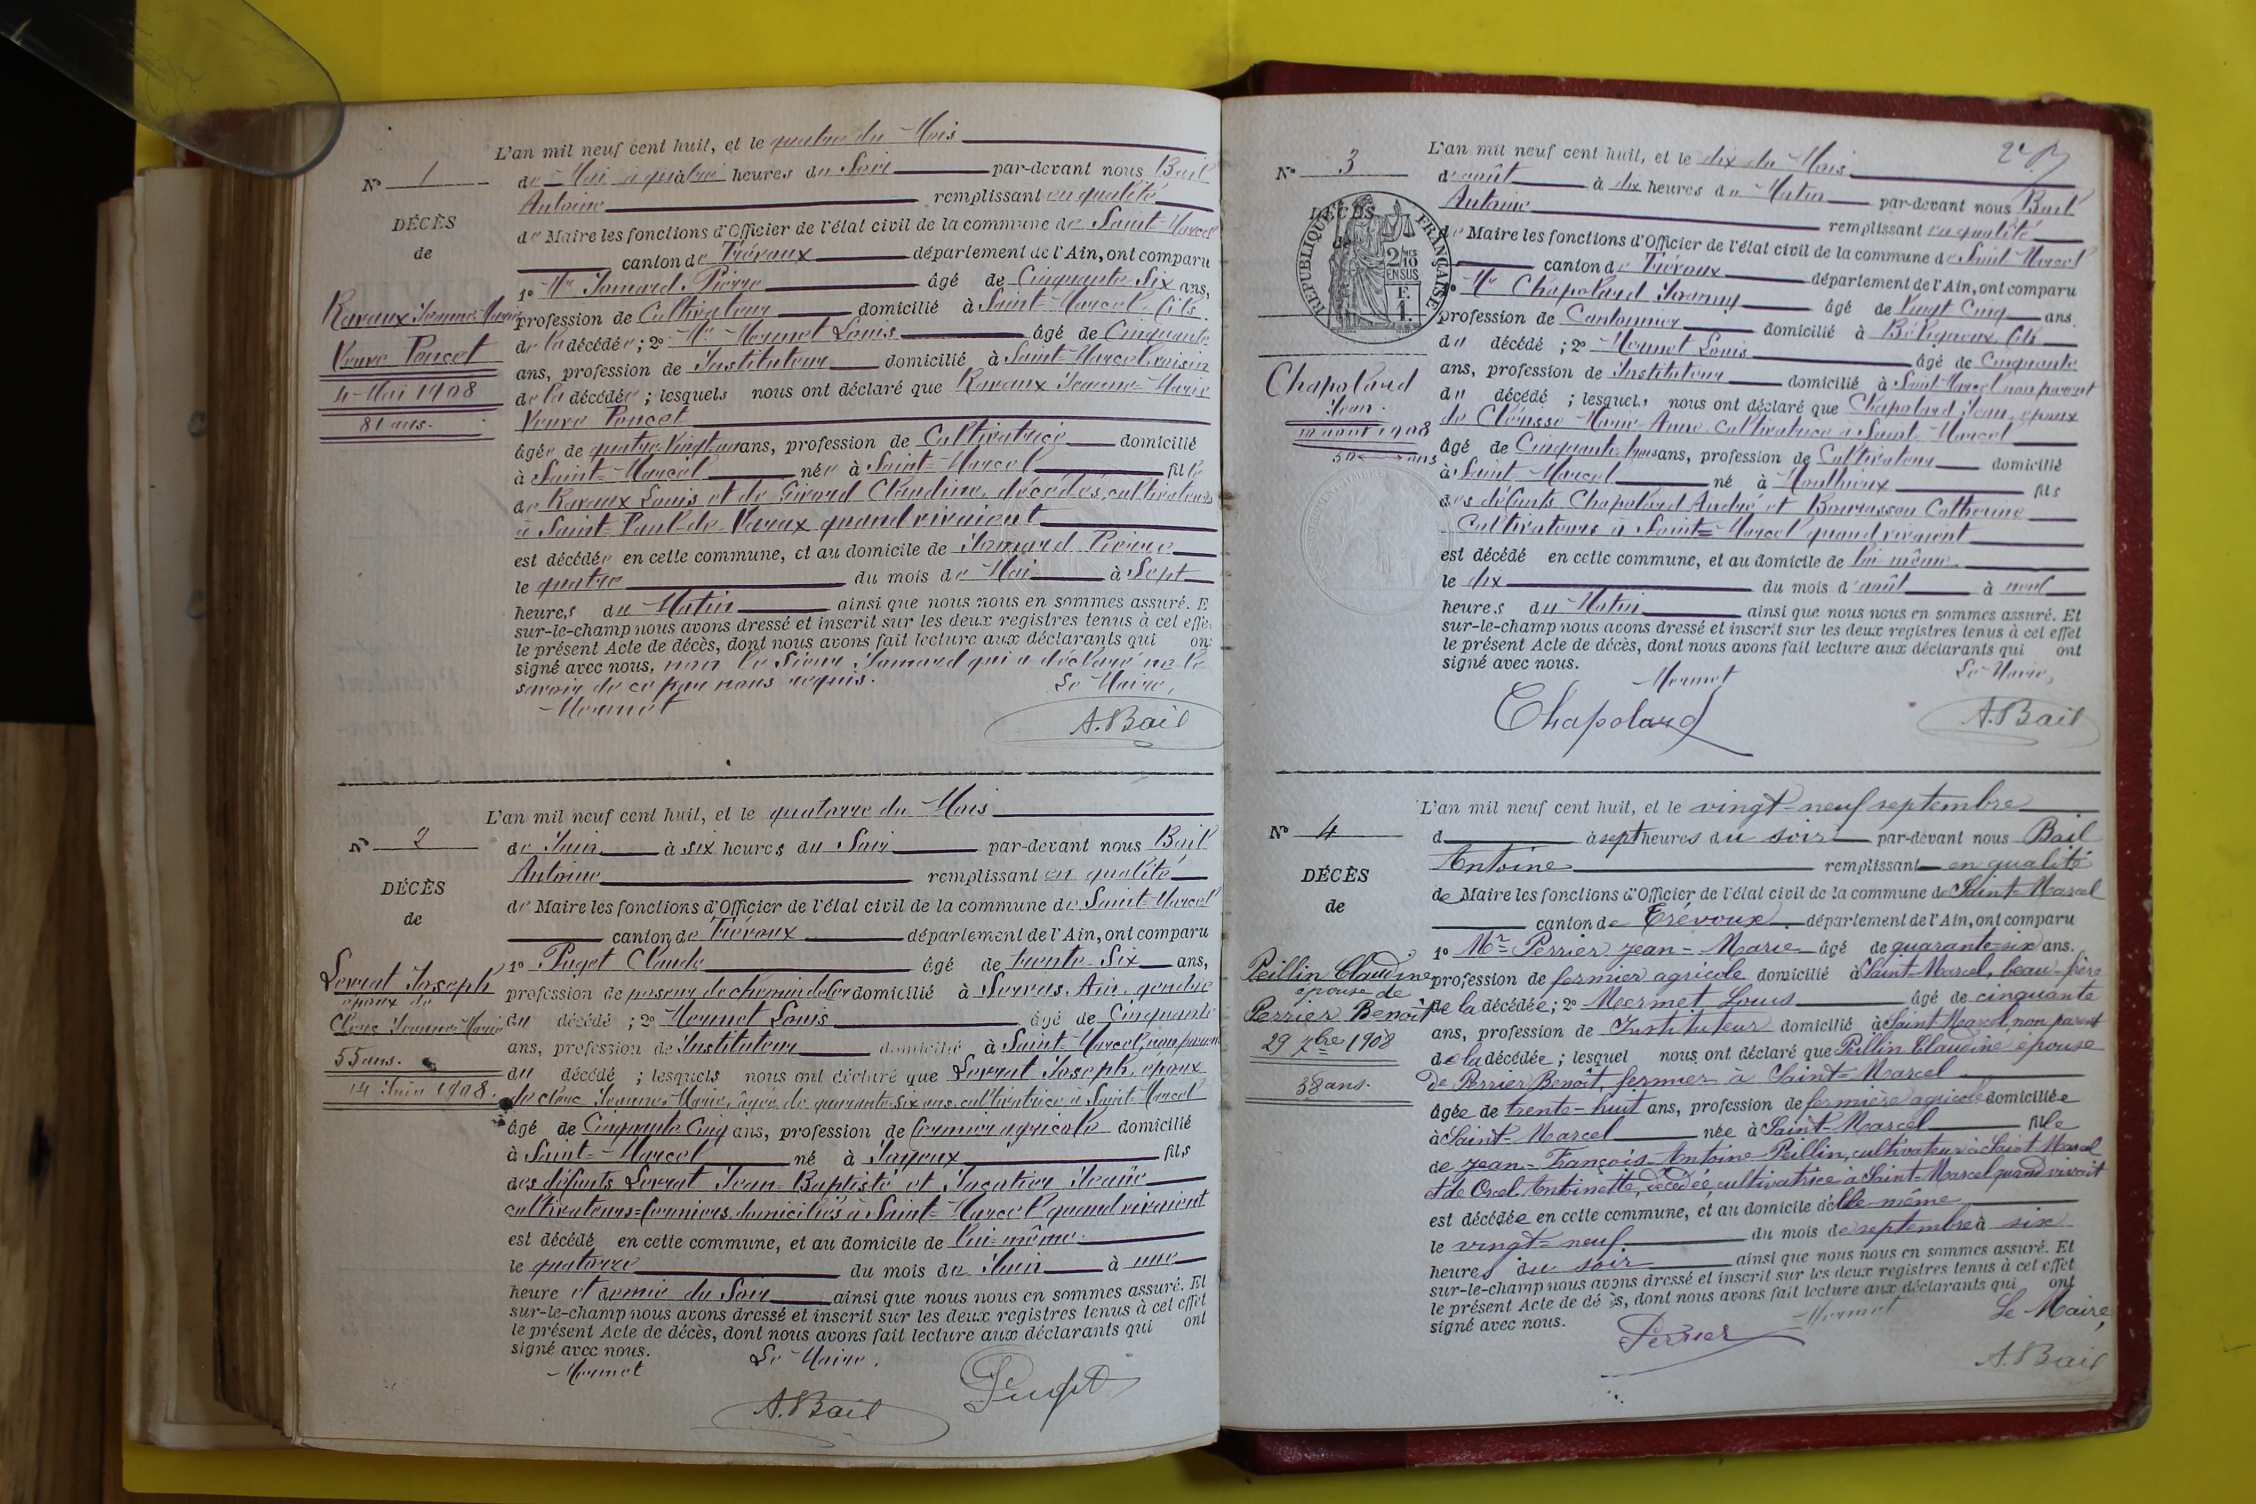 L'an mil neuf cent huit, et le quatre du Mois
N° 1
de Mai à quatre heures du Soir par-devant nous Bail
Antoine remplissant en qualité
DÉCÈS
de Maire les fonctions d'Officier de l'état civil de la commune de Saint-Marcel
de
canton de Trévoux département de l'Ain, ont comparu
1° Mr Jomard Pierre âgé de Cinquante Six ans,
Ravaux Jeanne Marie
profession de Cultivateur domicilié à Saint-Marcel, fils
Veuve Poncet
de la décédée ; 2° Mr Mermet Louis âgé de Cinquante
ans, profession de Instituteur domicilié à Saint-Marcel, voisin
4 Mai 1908
de la décédée ; lesquels nous ont déclaré que Ravaux Jeanne-Marie
Veuve Poncet
81 ans.
âgée de quatre vingt un ans, profession de Cultivatrice domicilié
à Saint-Marcel née à Saint-Marcel fille
de Ravaux Louis et de Girard Claudine, décédés, cultivateurs
à Saint-Paul-de-Varax quand vivaient
est décédée en cette commune, et au domicile de Jomard Pierre
le quatre du mois de Mai à Sept
heures du Matin ainsi que nous nous en sommes assuré. E
sur-le-champ nous avons dressé et inscrit sur les deux registres tenus à cet effe
le présent Acte de décès, dont nous avons fait lecture aux déclarants qui on
signé avec nous, non le Sieur Jomard qui a déclaré ne le
savoir de ce par nous requis. Le Maire,
Mermet
A. Bail
L'an mil neuf cent huit, et le quatorze du Mois
N° 2
de Juin à six heures du Soir par-devant nous Bail
Antoine remplissant en qualité
DÉCÈS
de Maire les fonctions d'Officier de l'état civil de la commune de Saint-Marcel
de
canton de Trévoux département de l'Ain, ont comparu
1° Puget Claude âgé de trente-Six ans,
Levrat Joseph
époux de
profession de poseur de chemin de fer domicilié à Servas, Ain, gendre
Clerc Jeanne-Marie
du décédé ; 2° Mermet Louis âgé de Cinquante
ans, profession de Instituteur domicilié à Saint-Marcel, non parent
55 ans.
du décédé ; lesquels nous ont déclaré que Levrat Joseph, époux
14 Juin 1908.
de Clerc Jeanne-Marie, âgée de quarante six ans, cultivatrice à Saint-Marcel
âgé de Cinquante Cinq ans, profession de fermier agricole domicilié
à Saint-Marcel né à fils
des défunts Levrat Jean-Baptiste et
cultivateurs-fermiers, domiciliés à Saint-Marcel quand vivaient
est décédé en cette commune, et au domicile de lui-même.
le quatorze du mois de Juin à une
heure et demie du Soir ainsi que nous nous en sommes assuré. Et
sur-le-champ nous avons dressé et inscrit sur les deux registres tenus à cet effet
le présent Acte de décès, dont nous avons fait lecture aux déclarants qui ont
signé avec nous.
Mermet Le Maire,
A. Bail
Puget
L'an mil neuf cent huit, et le dix du Mois
N° 3
d'août à dix heures du Matin par-devant nous Bail
Antoine remplissant en qualité
DÉCÈS
RÉPUBLIQUE FRANÇAISE
de Maire les fonctions d'Officier de l'état civil de la commune de Saint-Marcel
canton de Trévoux département de l'Ain, ont comparu
1° Mr Chapoland Joanny âgé de Vingt Cinq ans.
profession de Cantonnier domicilié à fils
du décédé ; 2° Mermet Louis âgé de Cinquante
Chapoland
Jean.
ans, profession de Instituteur domicilié à Saint-Marcel non parent
du décédé ; lesquels nous ont déclaré que Chapoland Jean, époux
10 août 1908
de Marie Anne, cultivatrice à Saint-Marcel
âgé de Cinquante trois ans, profession de Cultivateur domicilié
à Saint-Marcel né à Monthieux fils
des défunts Chapoland André et Catherine
cultivateurs à Saint-Marcel quand vivaient
est décédé en cette commune, et au domicile de lui même.
le dix du mois d'août à neuf
heures du Matin ainsi que nous nous en sommes assuré. Et
sur-le-champ nous avons dressé et inscrit sur les deux registres tenus à cet effet
le présent Acte de décès, dont nous avons fait lecture aux déclarants qui ont
signé avec nous.
Mermet Le Maire,
Chapoland
A. Bail
L'an mil neuf cent huit, et le vingt-neuf septembre
N° 4
d à sept heures du soir par-devant nous Bail
Antoine remplissant en qualité
DÉCÈS
de Maire les fonctions d'Officier de l'état civil de la commune de Saint-Marcel
de
canton de Trévoux département de l'Ain, ont comparu
1° Mr Perrier Jean-Marie âgé de quarante-six ans.
Peillin Claudine
profession de fermier agricole domicilié à Saint-Marcel, beau-frère
épouse de
Perrier Benoît
de la décédée ; 2° Mermet Louis âgé de cinquante
29 7bre 1908
ans, profession de Instituteur domicilié à Saint-Marcel, non parent
de la décédée ; lesquel nous ont déclaré que Peillin Claudine épouse
38 ans.
de Perrier Benoît, fermier à Saint-Marcel
âgée de trente-huit ans, profession de fermière agricole domiciliée
à Saint-Marcel née à Saint-Marcel fille
de Jean-François-Antoine Peillin, cultivateur à Saint-Marcel
et de Orcel Antoinette, décédée, cultivatrice à Saint-Marcel quand vivait
est décédée en cette commune, et au domicile d'elle-même
le vingt-neuf du mois de septembre à six
heures du soir ainsi que nous nous en sommes assuré. Et
sur-le-champ nous avons dressé et inscrit sur les deux registres tenus à cet effet
le présent Acte de décès, dont nous avons fait lecture aux déclarants qui ont
signé avec nous.
Mermet Le Maire,
Perrier
A. Bail